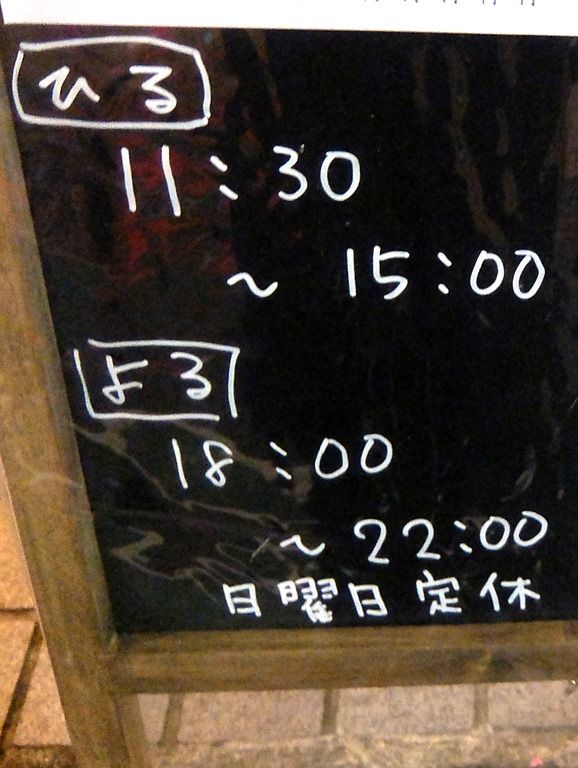 ひる
11:30
~ 15:00
よる
18:00
~ 22:00
日曜日定休